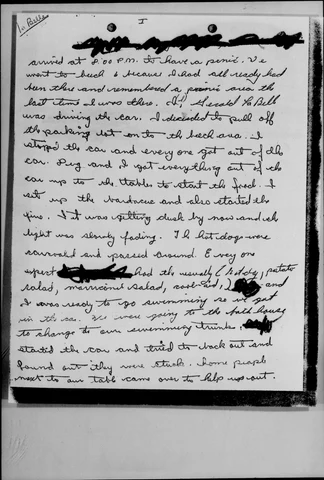 I
arrived at 8:00 P.M. to have a picnic. We
went to beach 6 because I had all ready had
been there and remembered a picnic area the
last time I was there. Gerald LaBell
was driving the car. I decided to pull off
the parking lot on to the beach area. I
stoped the car and every one got out of the
car. Peg and I got everything out of the
car up to the tables to start the food. I
set up the barbecue and also started the
fire. It was getting dusk by now and the
light was slowly fading. The hot dogs were
cooked and passed around. Every one
except had the usually (hot dog, potato
salad, macaroni salad, cool-aid, and
I was ready to go swimming so we got
in the car. We were going to the bath house
to change to our swimming trunks.
started the car and tried to back out and
found out they were stuck. Some people
next to our table came over to help us out.